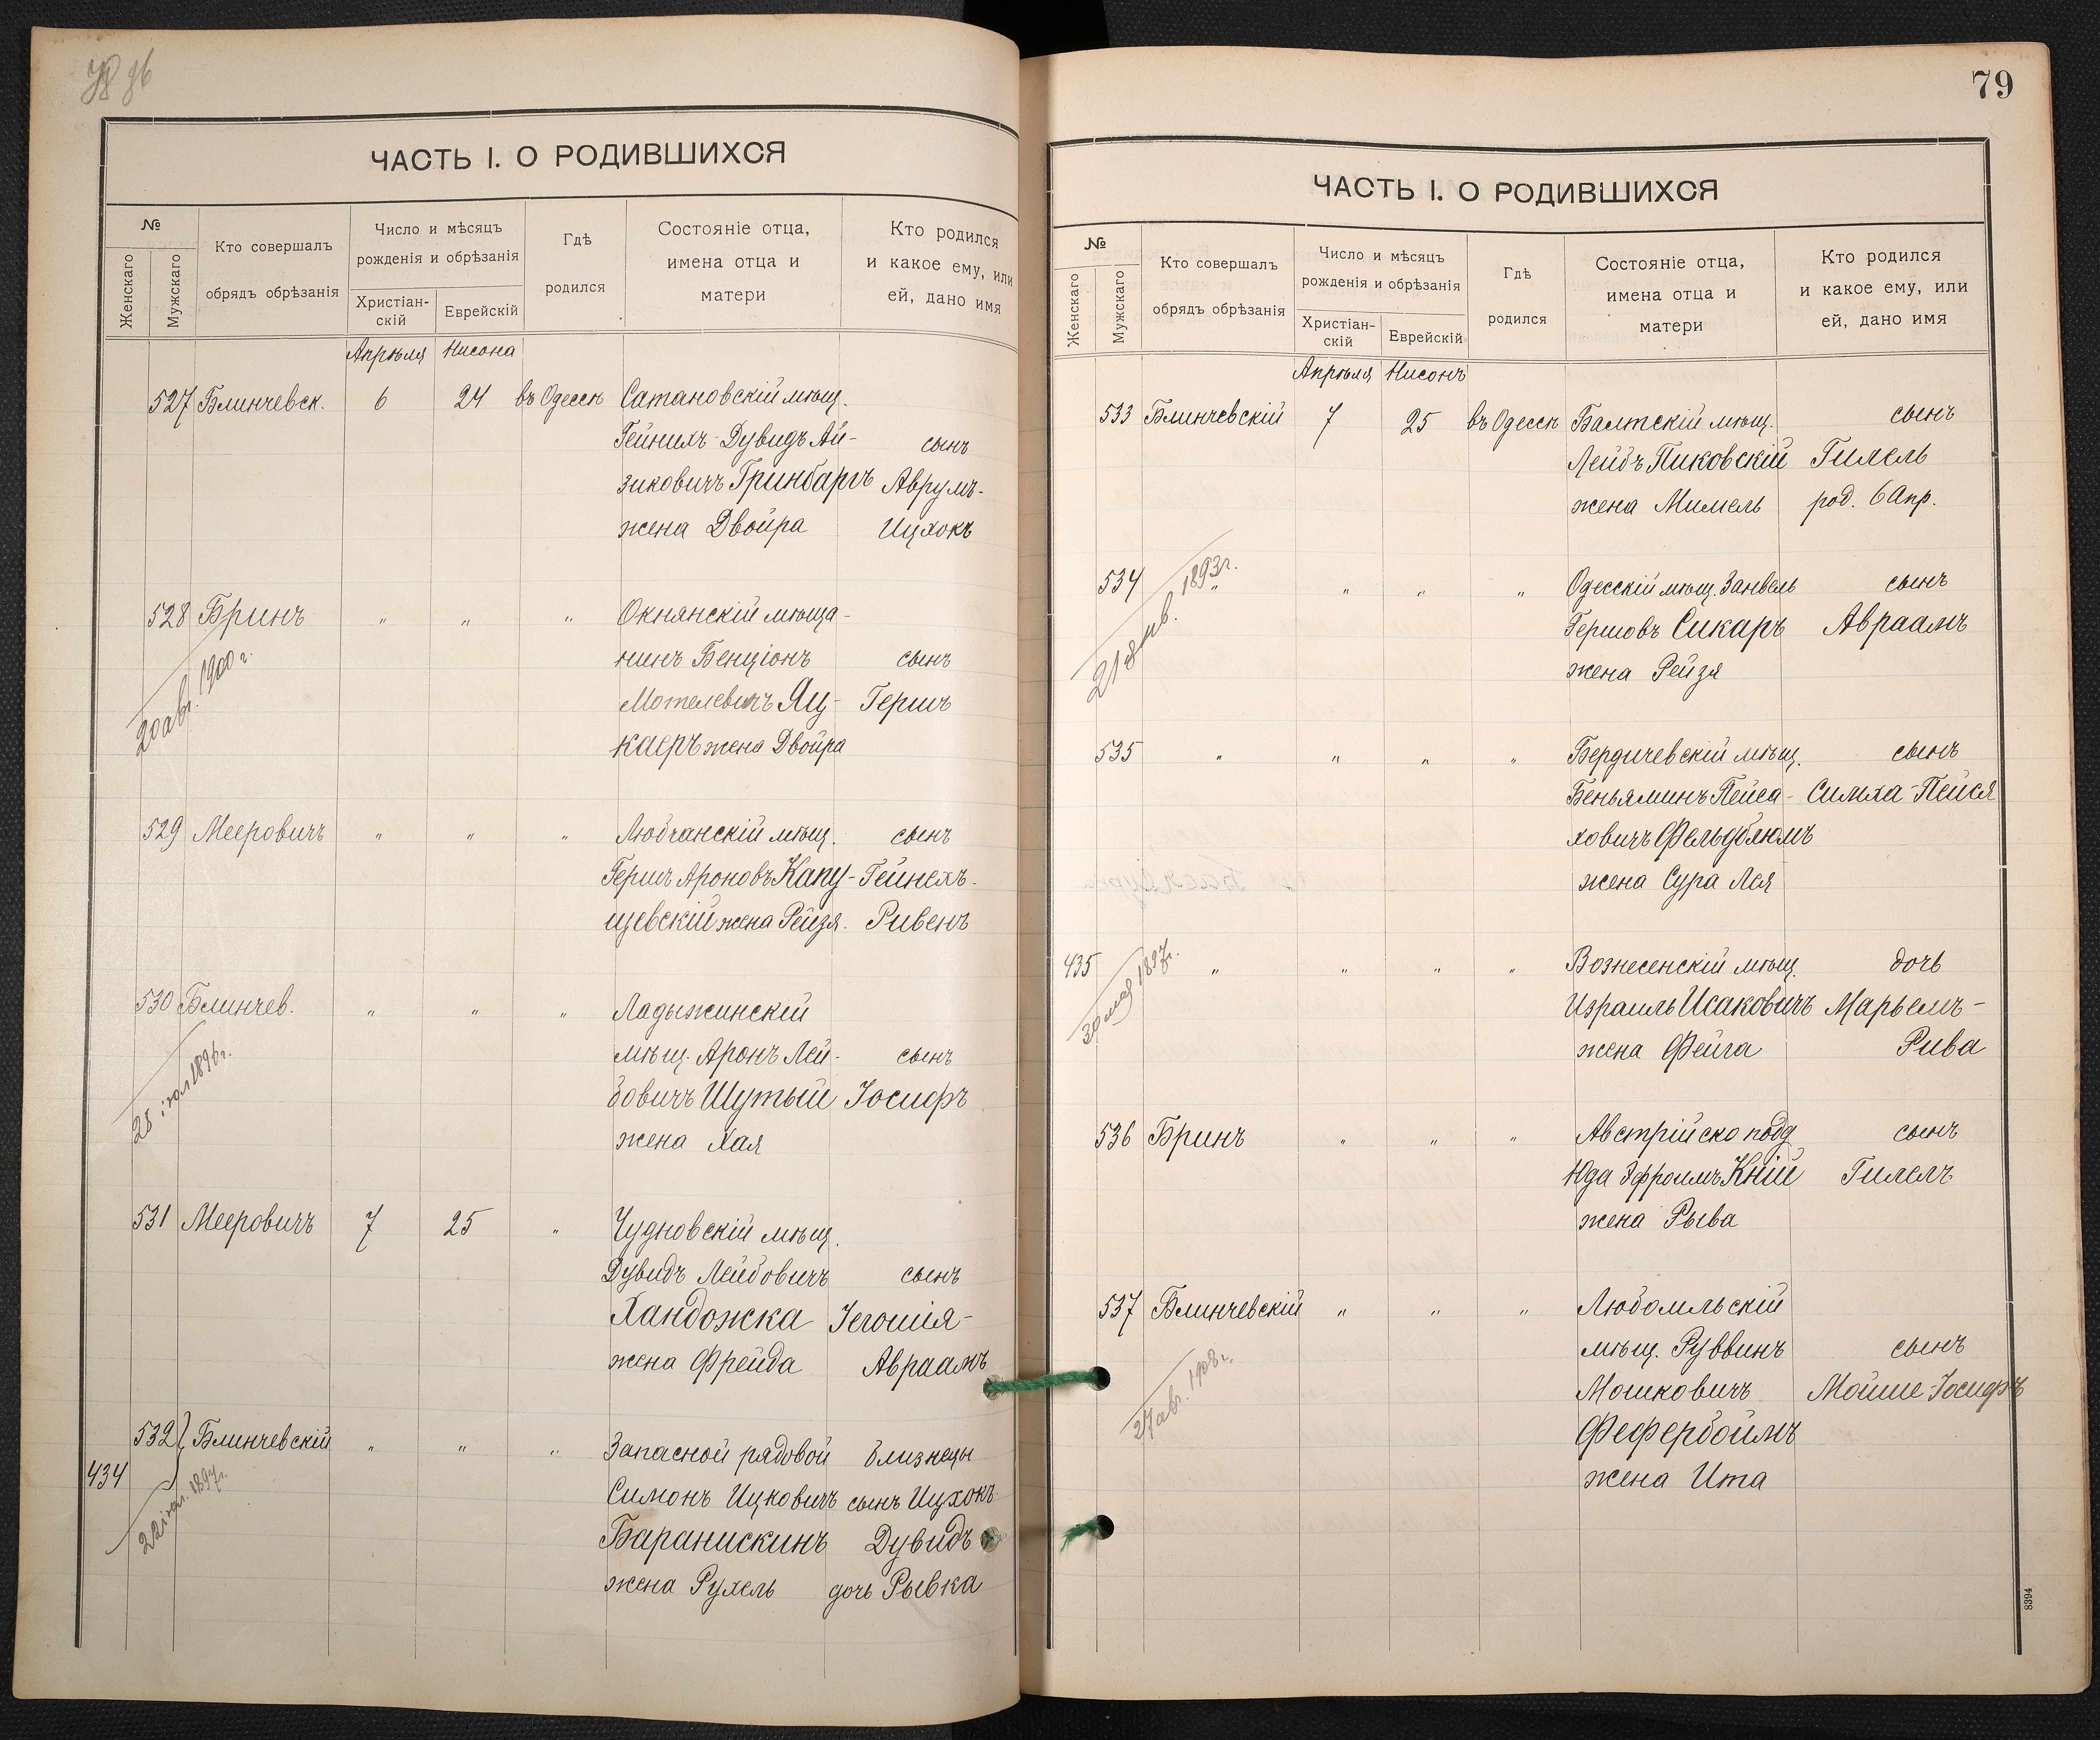 ЧАСТЬ I. О РОДИВШИХСЯ
№
Женскаго
Мужскаго
Кто совершалъ
обрядъ обрѣзанія
Число и мѣсяцъ
рожденія и обрѣзанія
Христіан-
скій
Еврейскій
Гдѣ
родился
Состояніе отца,
имена отца и
матери
Кто родился
и какое ему, или
ей, дано имя
Апрѣля Нисона
527 Блинчевск. 6 24 въ Одессѣ Сатановскій мѣщ.
Гейнихъ-Дувидъ Ай- сынъ
зиковичъ Гринбаргъ Аврумъ-
жена Двойра Ицхокъ
528 Бринъ " " " Окнянскій мѣща-
нинъ Бенціонъ сынъ
Мотелевичъ Яц- Гершъ
каеръ жена Двойра
20 авг. 1900 г.
529 Мееровичъ " " " Любчанскій мѣщ. сынъ
Гершъ Ароновъ Капу- Гейнехъ-
щевскій жена Рейзя. Ривенъ
530 Блинчев. " " " Ладыжинскій
мѣщ. Аронъ Лей- сынъ
бовичъ Шутый Іосифъ
жена Хая
28 іюл 1896 г.
531 Мееровичъ 7 25 " Чудновскій мѣщ.
Дувидъ Лейбовичъ сынъ
Хандожка Іегошія-
жена Фрейда Авраамъ
532 Блинчевскій " " " Запасной рядовой близнецы
434 Симонъ Ицковичъ сынъ Ицхокъ-
Баранискинъ Дувидъ
жена Рухель дочь Рывка
1897г.
79
ЧАСТЬ I. О РОДИВШИХСЯ
№
Женскаго
Мужскаго
Кто совершалъ
обрядъ обрѣзанія
Число и мѣсяцъ
рожденія и обрѣзанія
Христіан-
скій
Еврейскій
Гдѣ
родился
Состояніе отца,
имена отца и
матери
Кто родился
и какое ему, или
ей, дано имя
Апрѣля Нисонъ
533 Блинчевскій 7 25 въ Одессѣ Балтскій мѣщ. сынъ
Лейбъ Пиковскій Гилель
жена Мимель род. 6 Апр.
534 " " " " Одесскій мѣщ. Занвель сынъ
Гершовъ Сикаръ Авраамъ
жена Рейзя
1893г.
535 " " " " Бердичевскій мѣщ. сынъ
Беньяминъ Пейса- Симха-Пейся
ховичъ Фельдблюмъ
жена Сура Лея
435 " " " " Вознесенскій мѣщ. дочь
Израиль Исаковичъ Марьемъ-
жена Фейга Рива
30 мая 1897г.
536 Бринъ " " " Австрійско подд сынъ
Юда Эфроимъ Кній Гилелъ
жена Рыва
537 Блинчевскій " " " Любомльскій
мѣщ. Руввинъ сынъ
Мошковичъ Мойше-Іосифъ
Фефербоймъ
жена Ита
27 авг. 1908 г.
8394